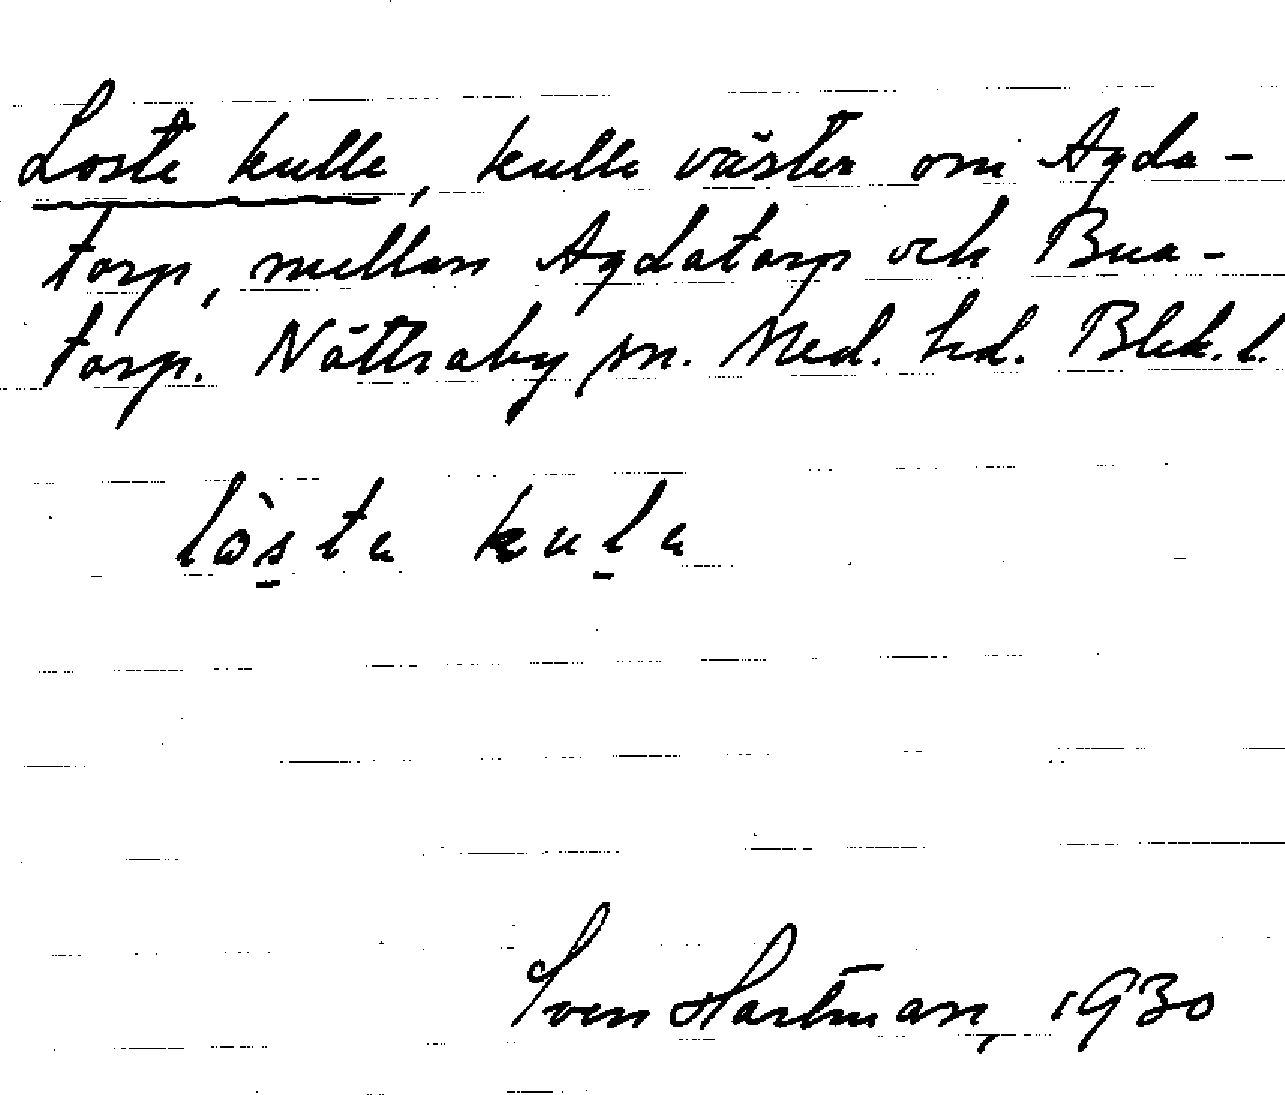 Loste kulle, kulle väster om Agda-
torp, mellan Agdatorp och Bua-
torp. Nättraby sn. Med. hd. Blek. l.
lòsta kula
Sven Hartman, 1930